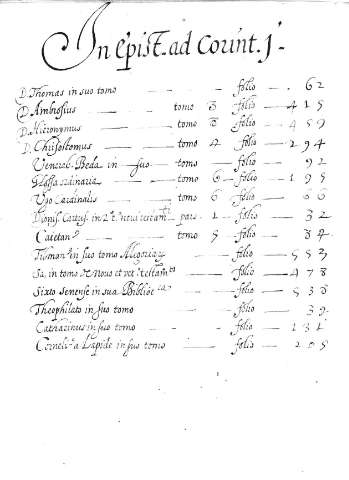 In Epist. ad Corint. j.
D. Thomas in suo tomo - - folio - . 62
D. Ambrosius tomo 3 folio 415
D. Hieronymus tomo 8 folio 459
D. Chrisostomus tomo 4 folio 294
Venerab. Beda in suo tomo folio 92
Glossa ordinaria tomo 6 folio 195
Ugo Cardinalis tomo 6 folio 66
folio 32
Caietanº tomo 5 folio 84
in suo tomo folio 553
Sa, in tomo folio 478
Sixto Senense in sua Biblioteca folio 538
Theophilato in suo tomo folio 39
Catharinus in suo tomo folio 131
Cornelius a Lapide in suo tomo folio 205